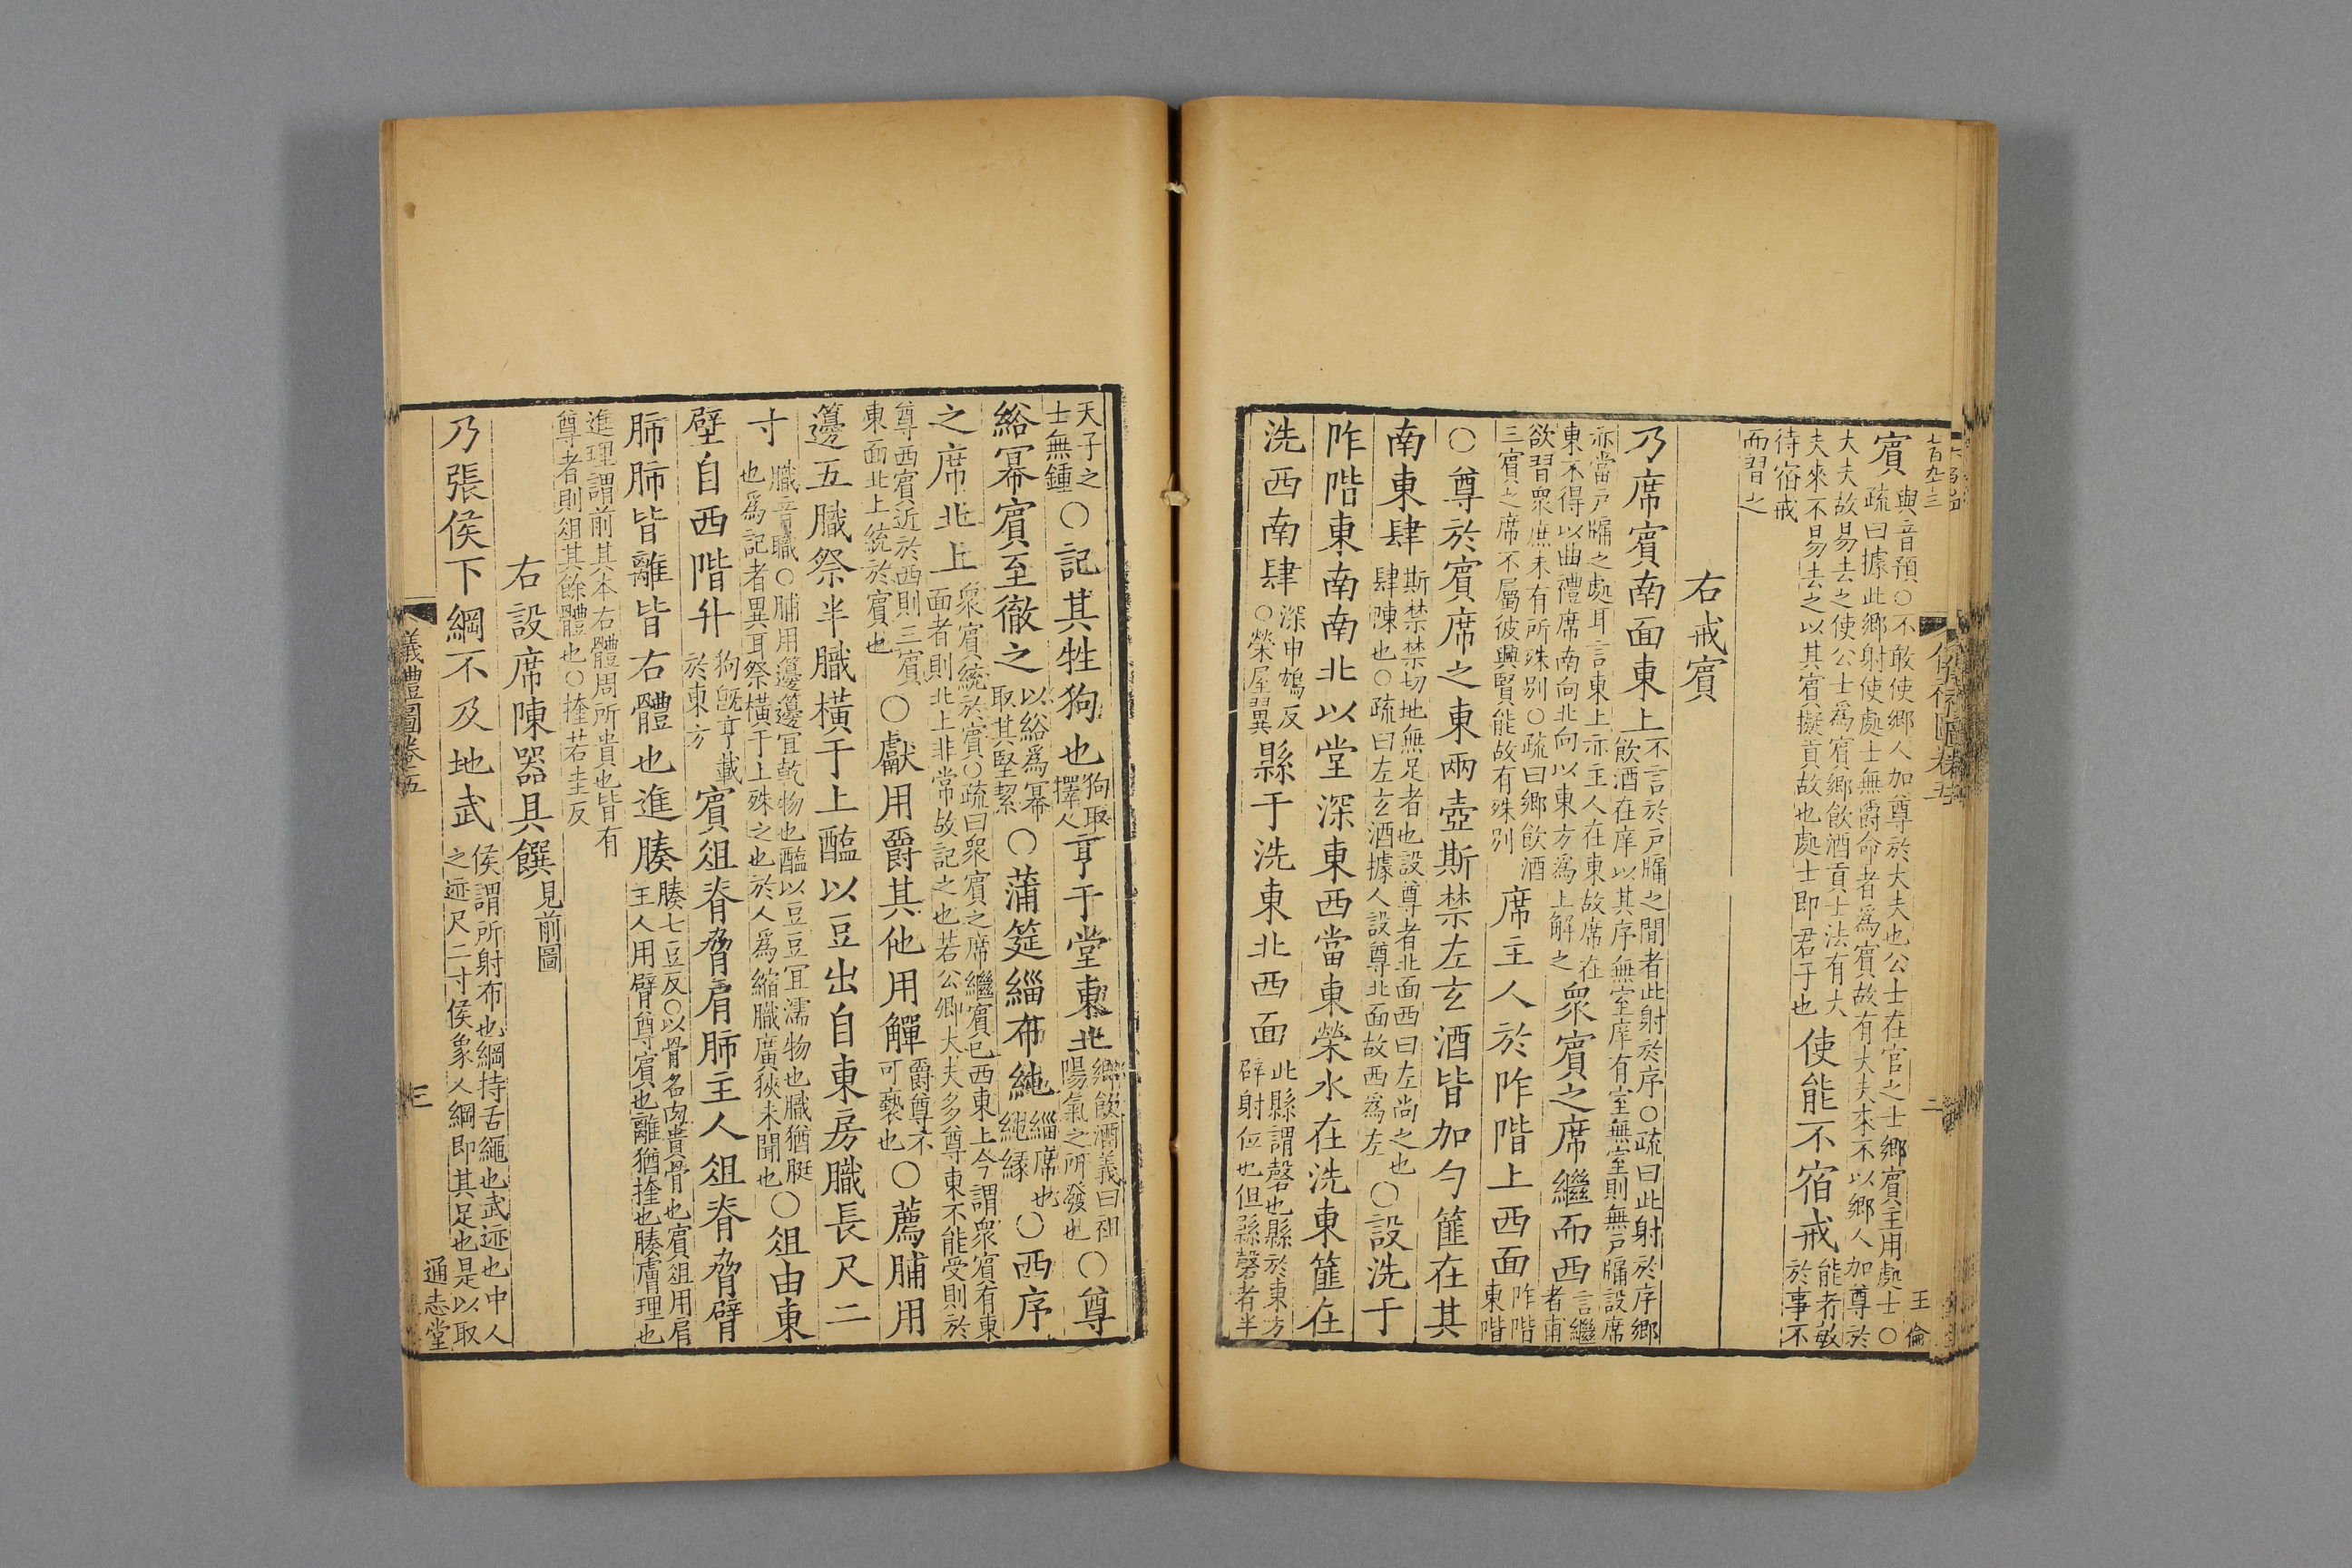 賓與音預○不敢使鄉人加尊於大夫也公士在官之士鄉賓主用處士○
疏曰據此鄉射使處士無爵命者為賓故有大夫來不以鄉人加尊於
大夫故易去之使公士為賓鄉飲酒貢士法有大
夫來不易去之以其賓擬貢故也處士即君子也使能不宿戒能者敏於事不
待宿戒
而習之
右戒賓
乃席賓南面東上不言於戶牖之間者此射於序○疏曰此射於序鄉
飲酒在庠以其序無室庠有室無室則無戶牖設席
亦當戶牖之處耳言東上亦主人在東故席在
東不得以曲禮席南向北向以東方為上解之衆賓之席繼而西言繼者甫
欲習衆庶未有所殊別○疏曰鄉飲酒
三賓之席不屬彼興賢能故有殊別席主人於阼階上西面阼階東階
○尊於賓席之東兩壺斯禁左玄酒皆加勺篚在其
南東肆斯禁禁切地無足者也設尊者北面西曰左尚之也
肆陳也○疏曰左玄酒據人設尊北面故西為左○設洗于
阼階東南南北以堂深東西當東榮水在洗東篚在
洗西南肆深申鴆反○榮屋翼縣于洗東北西面此縣謂磬也縣於東方
辟射位也但縣磬者半
天子之士無鍾○記其牲狗也狗取擇人亨于堂東北鄉飲酒義曰祖陽氣之所發也○尊
綌冪賓至徹之以綌為冪取其堅絜○蒲筵緇布純緇席也純緣○西序
之席北上衆賓統於賓○疏曰衆賓之席繼賓已西東上今謂衆賓有東
面者則北上非常故記之也若公卿大夫多尊東不能受則於
尊西賓近於西則三賓
東面北上統於賓也○獻用爵其他用觶爵尊不可褻也○薦脯用
籩五膱祭半膱橫于上醢以豆出自東房膱長尺二
寸膱音職○脯用籩籩宜乾物也醢以豆豆宜濡物也膱猶脡
也為記者異耳祭橫于上殊之也於人為縮膱廣狹未聞也○俎由東
壁自西階升狗旣亨載於東方賓俎脊脅肩肺主人俎脊脅臂
肺肺皆離皆右體也進腠腠七豆反○以骨名肉貴骨也賓俎用肩
主人用臂尊賓也離猶捶也腠膚理也
進理謂前其本右體周所貴也皆有
尊者則俎其餘體也○捶若圭反
右設席陳器具饌見前圖
乃張侯下綱不及地武侯謂所射布也綱持舌繩也武迹也中人
之迹尺二寸侯象人綱即其足也是以取
王倫
二
儀禮圖卷五
三
通志堂